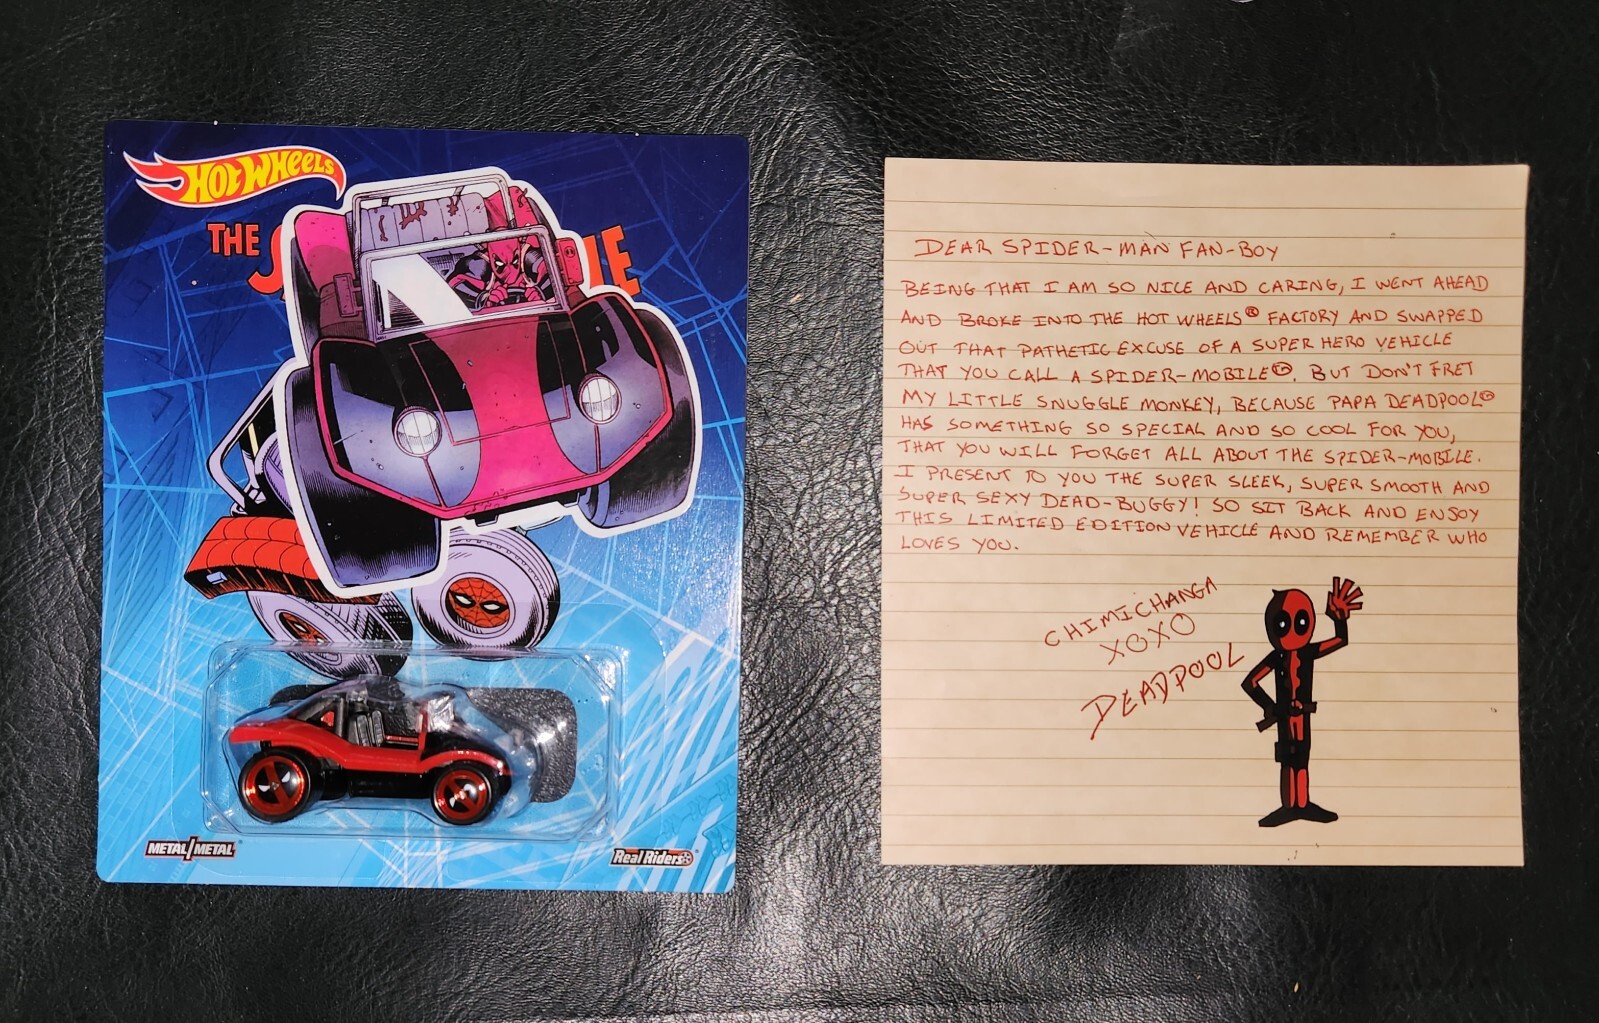 HOT WHEELS
THE S LE
METAL/METAL
Real Riders
DEAR SPIDER-MAN FAN-BOY
BEING THAT I AM SO NICE AND CARING, I WENT AHEAD
AND BROKE INTO THE HOT WHEELS® FACTORY AND SWAPPED
OUT THAT PATHETIC EXCUSE OF A SUPER HERO VEHICLE
THAT YOU CALL A SPIDER-MOBILE©. BUT DON'T FRET
MY LITTLE SNUGGLE MONKEY, BECAUSE PAPA DEADPOOL©
HAS SOMETHING SO SPECIAL AND SO COOL FOR YOU,
THAT YOU WILL FORGET ALL ABOUT THE SPIDER-MOBILE.
I PRESENT TO YOU THE SUPER SLEEK, SUPER SMOOTH AND
SUPER SEXY DEAD-BUGGY! SO SIT BACK AND ENJOY
THIS LIMITED EDITION VEHICLE AND REMEMBER WHO
LOVES YOU.
CHIMICHANGA
XOXO
DEADPOOL